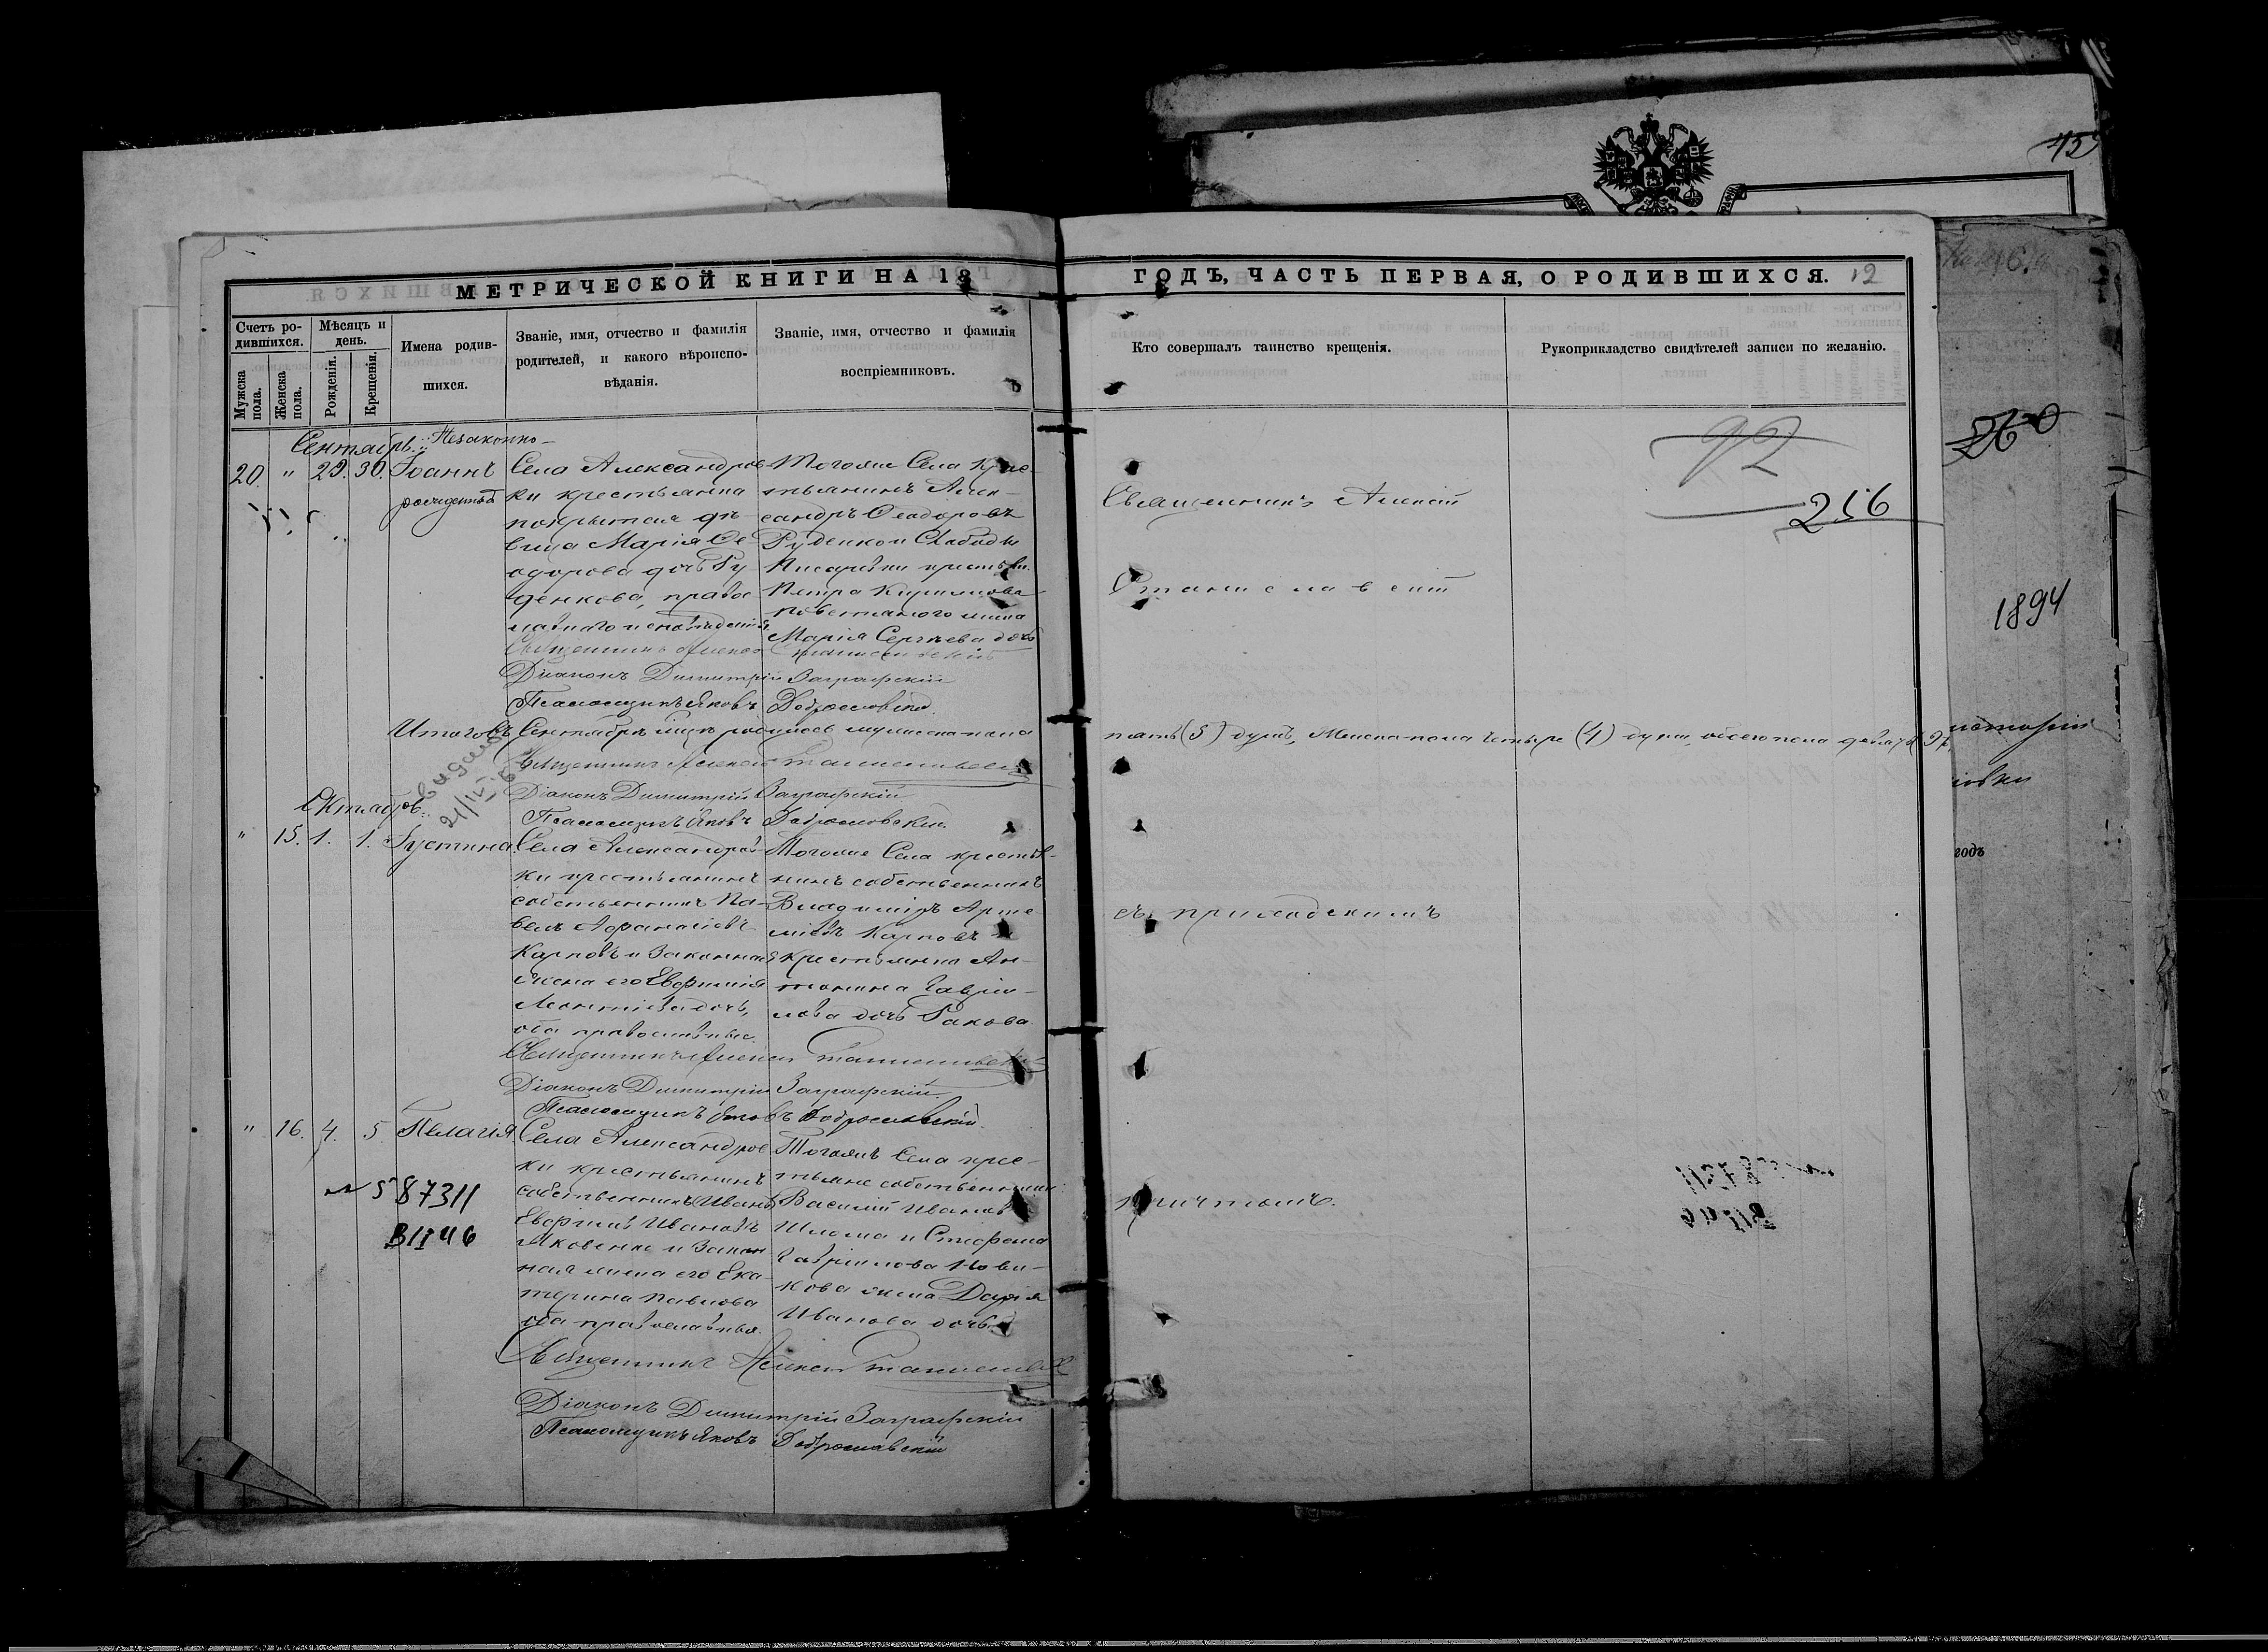 МЕТРИЧЕСКОЙ КНИГИ НА 18
ГОДЪ, ЧАСТЬ ПЕРВАЯ, О РОДИВШИХСЯ. 12
Счетъ ро-
дившихся.
Мужска
пола.
Женска
пола.
Мѣсяцъ и
день.
Рожденія.
Крещенія.
Имена родив-
шихся.
Званіе, имя, отчество и фамилія
родителей, и какого вѣроиспо-
вѣданія.
Званіе, имя, отчество и фамилія
воспріемниковъ.
Кто совершалъ таинство крещенія.
Рукоприкладство свидѣтелей записи по желанію.
Сентябрь Незаконно-
20. " 29. 30. Іоаннъ
рожденный
Села Александров
ки крестьянка
покрытая дѣ-
вица Марія Ѳе-
одорова дочь Ру-
денкова, право
славнаго исповѣданія
Тогоже Села крес-
тьянинъ Алек-
сандръ Ѳеодоровъ
Руденко и Слободы
Петра
Марія Сергѣева дочь
Священникъ Алексій
Станиславскій
Священникъ Алексій Станиславскій
Діаконъ Димитрій Заграфскій
Псаломщикъ Яковъ Доброславскій
Итого въ Сентябрѣ родилось мужеска пола
пять (5) душъ, Женска пола четыре (4) души, обоего пола девять (9)
Священникъ Алексій Станиславскій
Діаконъ Димитрій Заграфскій
Псаломщикъ Яковъ Доброславскій
Октябрь
" 15. 1. 1. Іустина
Села Александров-
ки крестьянинъ
собственникъ Па-
велъ Афанасіевъ
Карповъ и законная
жена его Евфимія
Леонтіева дочь,
оба православные.
Тогоже Села крестья-
нинъ собственникъ
Владиміръ Арте-
міевъ Карповъ и
крестьянка Ан-
тонина Гаврии-
лова дочь Ракова
съ приходскимъ
Священникъ Алексій Станиславскій
Діаконъ Димитрій Заграфскій
Псаломщикъ Яковъ Доброславскій
" 16. 4. 5. Пелагія
Села Александров
ки крестьянинъ
собственникъ Иванъ
Ивановъ
Яковенко и закон
ная жена его Ека-
терина Павлова
оба православныя.
Тогоже Села крес-
тьяне собственники
Василій Ивановъ
Шлома и Стефана
Гавріилова Нови-
кова жена Дарія
Иванова дочь
причтомъ.
587311
Священникъ Алексій Станиславскій
Діаконъ Димитрій Заграфскій
Псаломщикъ Яковъ Доброславскій
92
256
45
16.
1894
годъ